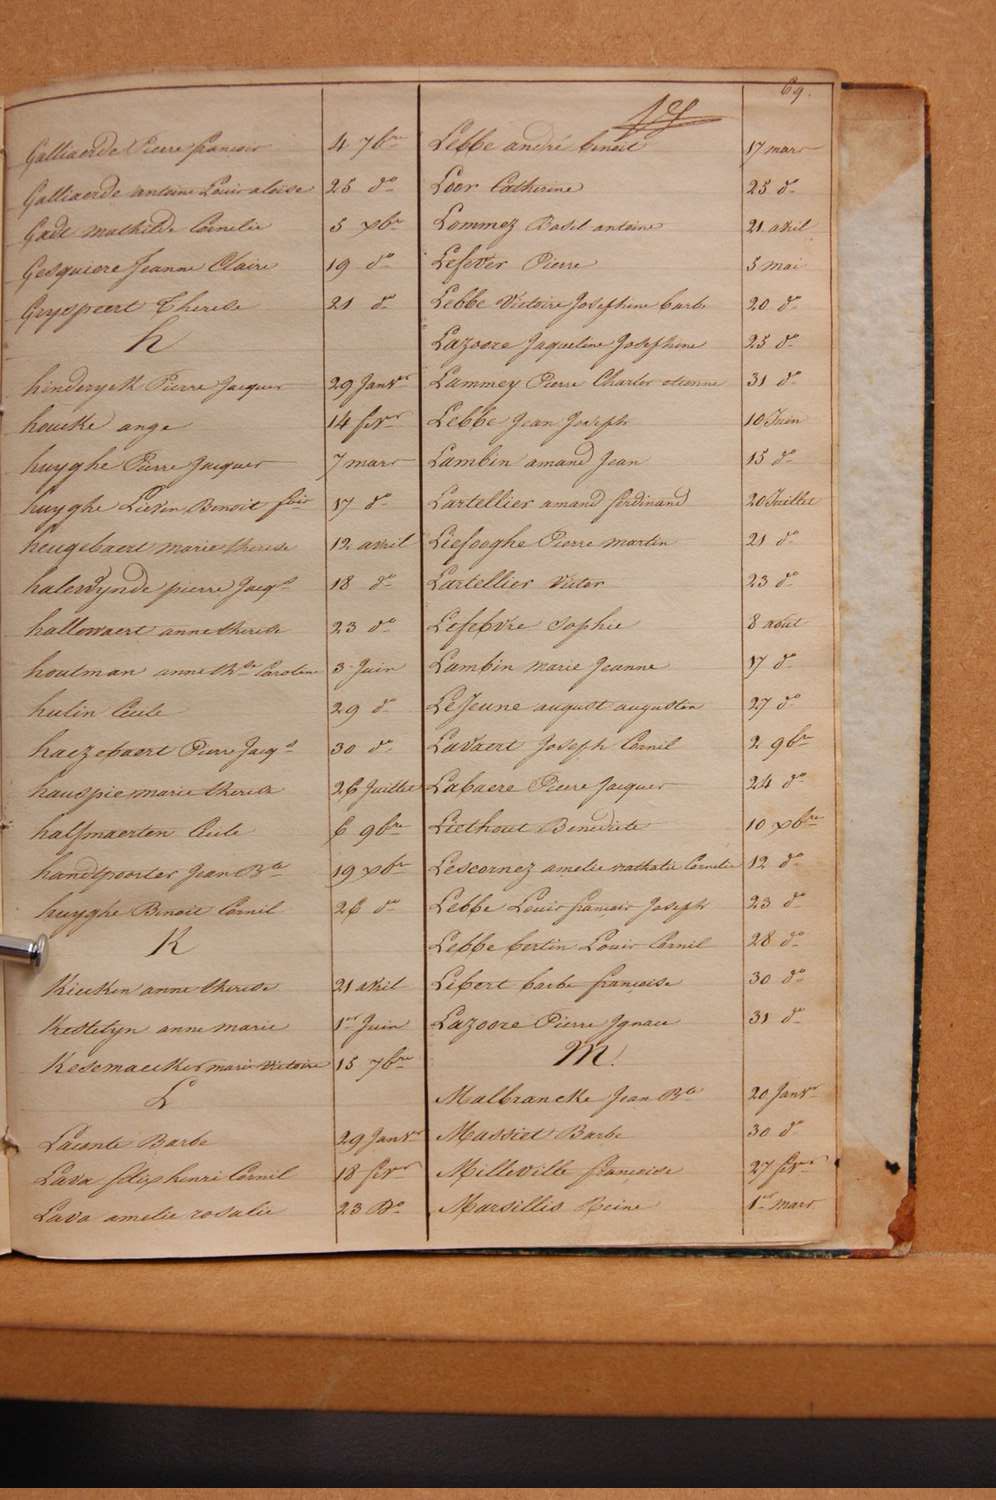 69.
Galliaerde Pierre francois 4 7bre
Galliaerde antoine Louis aloise 25 do
Gadt mathilde Cornelie 5 xbre
Gesquiere Jeanne Claire 19 do
Geyspeert Therese 21 do
h
hinderyck Pierre Jacques 29 Janvr
houcke ange 14 fevr
huyghe Pierre Jacques 7 mars
huyghe Lievin Benoit 17 do
heugebaert marie therese 12 avril
halewynde pierre Jacqs 18 do
hallewaert anne therese 23 do
houtman anne thse Caroline 3 Juin
hulin Cecile 29 do
haezebaert Pierre Jacqs 30 do
hauspie marie therese 26 Juillet
halfmaerten Cecile 6 9bre
handtpoorter Jean Bte 19 xbre
huyghe Benoit Cornil 26 do
K
Kieken anne therese 21 avril
Kestelyn anne marie 1er Juin
Kesemaecker marie Victoire 15 7bre
L
Laconte Barbe 29 Janvr
Lava henri Cornil 18 fevr
Lava amelie rosalie 23 Do
Lebbe andré benoit 17 mars
Loor Catherine 25 do
Lommez Basil antoine 21 avril
Lefever Pierre 5 mai
Lebbe Victoire Josephine barbe 20 do
Lazoore Jaqueline Josephine 25 do
Lammey Pierre Charles etienne 31 do
Lebbe Jean Joseph 10 Juin
Lambin amand Jean 15 do
Lartellier amand ferdinand 20 Juillet
Liefooghe Pierre martin 21 do
Lartellier Victor 23 do
Lefebvre Sophie 8 août
Lambin marie Jeanne 17 do
LeJeune august augustin 27 do
Lavaert Joseph Cornil 2 9bre
Labaere Pierre Jacques 24 do
Liethout Benedicte 10 xbre
Lescornez amelie nathalie Cornelie 12 do
Lebbe Louis francois Joseph 23 do
Lebbe bertin Louis Cornil 28 do
Libert barbe françoise 30 do
Lazoore Pierre Ignace 31 do
M.
Malbrancke Jean Bte 20 Janvr
Massiet Barbe 30 do
Milleville françoise 27 fevr
Marsillis Reine 1er mars